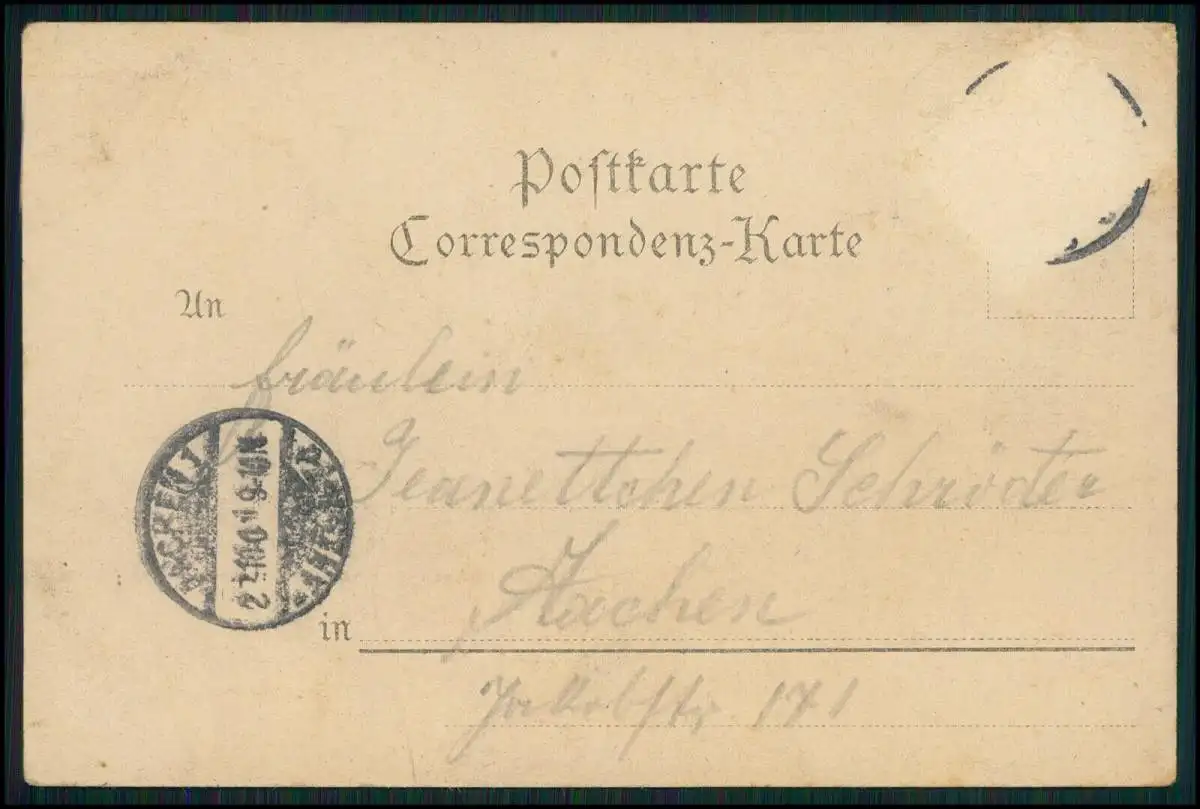 Postkarte
Correspondenz-Karte
An
Fräulein
Jeanettchen Schröder
in Aachen
Jakobstr 171